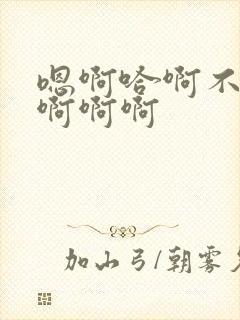 嗯啊哈啊不
啊啊啊
加山弓/朝雾